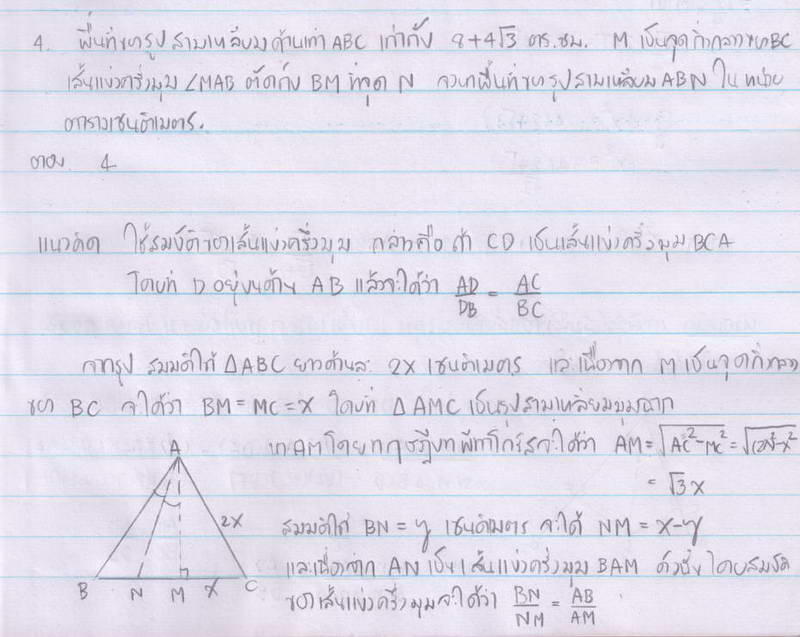 4. พื้นที่ของรูปสามเหลี่ยมด้านเท่า ABC เท่ากับ 8+4√3 ตร.ซม. M เป็นจุดกึ่งกลางของ BC
เส้นแบ่งครึ่งมุม ∠MAB ตัดกับ BM ที่จุด N จงหาพื้นที่ของรูปสามเหลี่ยม ABN ในหน่วย
ตารางเซนติเมตร.
ตอบ 4
แนวคิด ใช้สมบัติของเส้นแบ่งครึ่งมุม กล่าวคือ ถ้า CD เป็นเส้นแบ่งครึ่งมุม BCA
โดยที่ D อยู่บนด้าน AB แล้วจะได้ว่า AD/DB = AC/BC
จากรูป สมมติให้ △ABC ยาวด้านละ 2x เซนติเมตร และเนื่องจาก M เป็นจุดกึ่งกลาง
ของ BC จะได้ว่า BM = MC = x โดยที่ △AMC เป็นรูปสามเหลี่ยมมุมฉาก
หา AM โดยทฤษฎีบทพีทาโกรัสจะได้ว่า AM = √(AC²-MC²) = √((2x)²-x²)
= √3x
A
2x
B N M x C
สมมติให้ BN = y เซนติเมตร จะได้ NM = x-y
และเนื่องจาก AN เป็นเส้นแบ่งครึ่งมุม BAM ดังนั้นโดยสมบัติ
ของเส้นแบ่งครึ่งมุมจะได้ว่า BN/NM = AB/AM